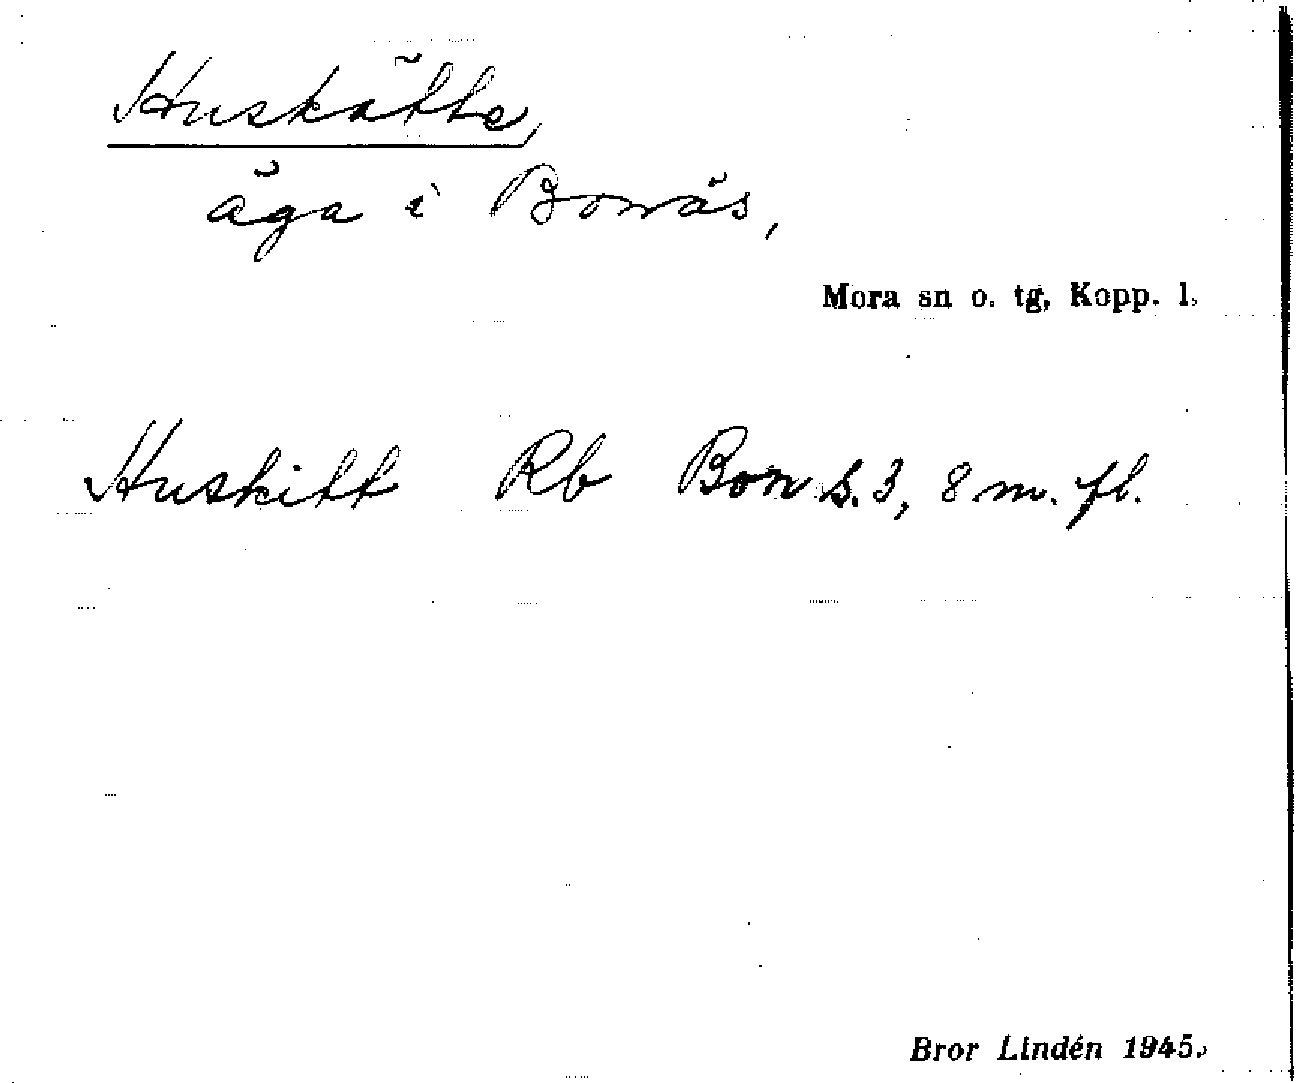 Huskätte,
äga i Bonäs,
Mora sn o. tg, Kopp. l.
Huskitt Rb Bon s. 3, 8 m. fl.
Bror Lindén 1945.